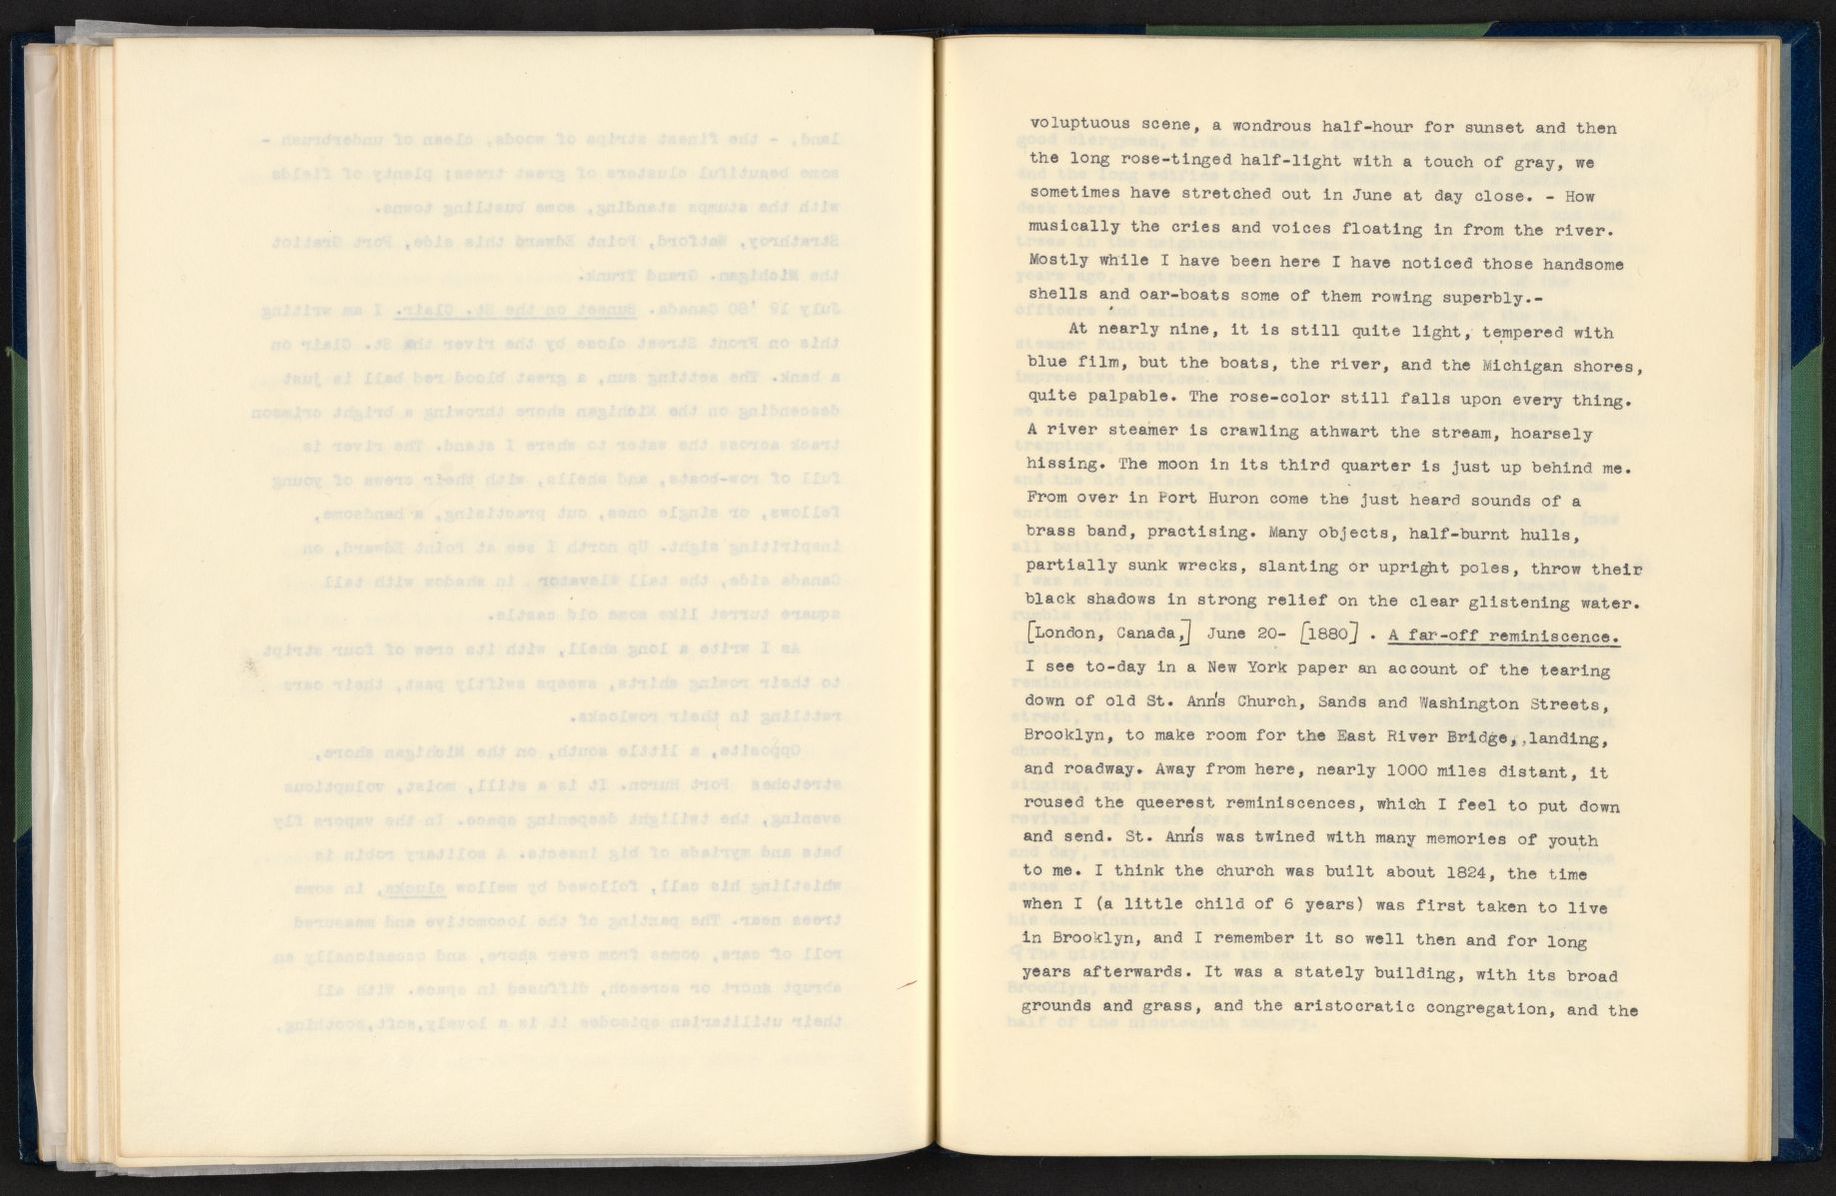 voluptuous scene, a wondrous half-hour for sunset and then
the long rose-tinged half-light with a touch of gray, we
sometimes have stretched out in June at day close. - How
musically the cries and voices floating in from the river.
Mostly while I have been here I have noticed those handsome
shells and oar-boats some of them rowing superbly.-
At nearly nine, it is still quite light, tempered with
blue film, but the boats, the river, and the Michigan shores,
quite palpable. The rose-color still falls upon every thing.
A river steamer is crawling athwart the stream, hoarsely
hissing. The moon in its third quarter is just up behind me.
From over in Port Huron come the just heard sounds of a
brass band, practising. Many objects, half-burnt hulls,
partially sunk wrecks, slanting or upright poles, throw their
black shadows in strong relief on the clear glistening water.
[London, Canada,] June 20- [1880] . A far-off reminiscence.
I see to-day in a New York paper an account of the tearing
down of old St. Ann's Church, Sands and Washington Streets,
Brooklyn, to make room for the East River Bridge,,landing,
and roadway. Away from here, nearly 1000 miles distant, it
roused the queerest reminiscences, which I feel to put down
and send. St. Ann's was twined with many memories of youth
to me. I think the church was built about 1824, the time
when I (a little child of 6 years) was first taken to live
in Brooklyn, and I remember it so well then and for long
years afterwards. It was a stately building, with its broad
grounds and grass, and the aristocratic congregation, and the